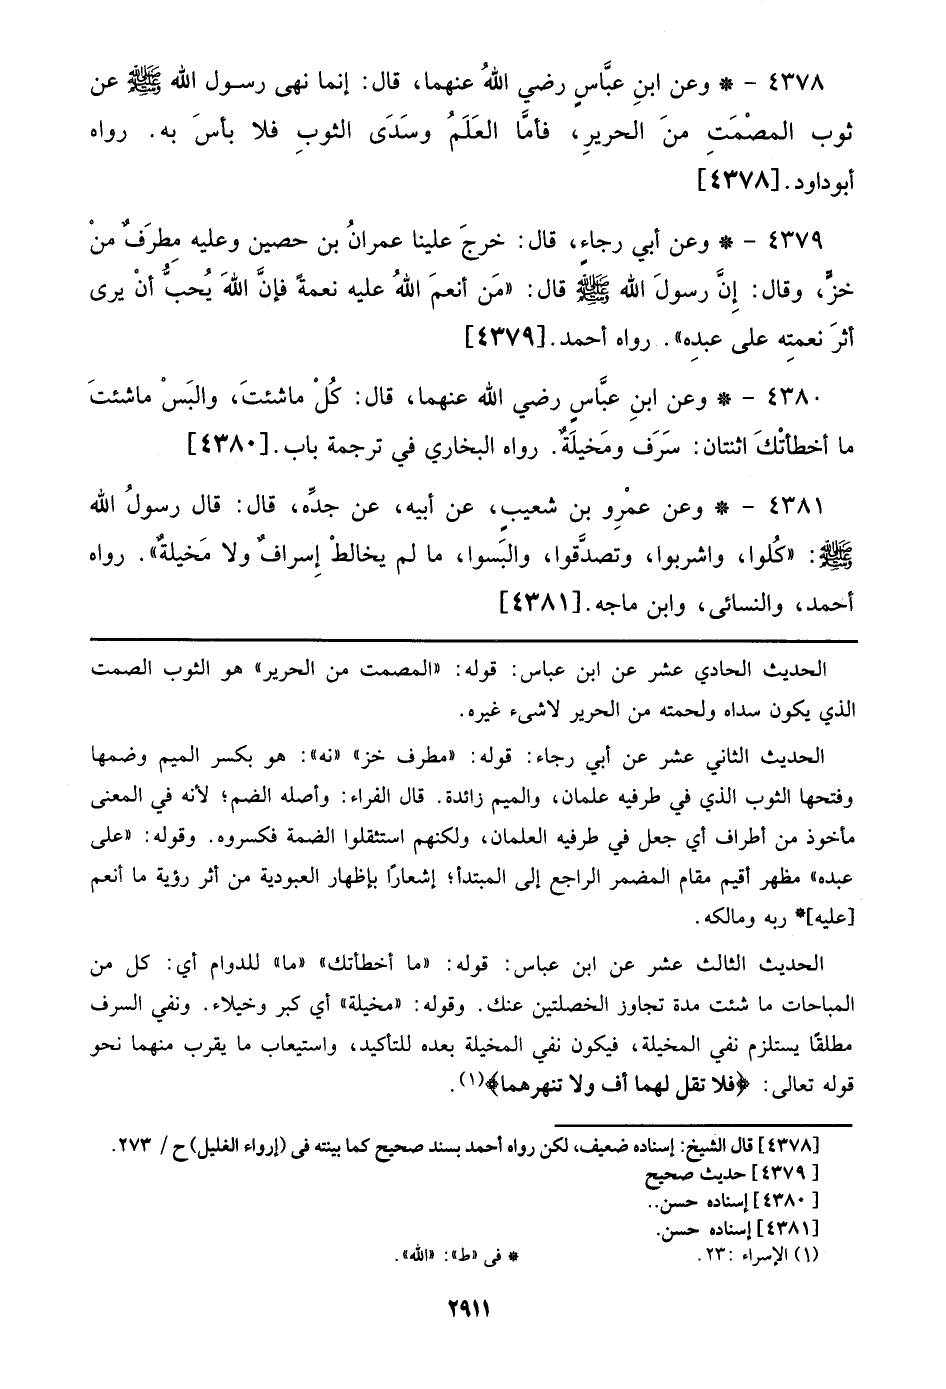 ٤٣٧٨ - * وعن ابنِ عبَّاسٍ رضي اللهُ عنهما، قال: إنما نهى رسول الله ﷺ عن
ثوب المصْمَتِ منَ الحريرِ، فأمَّا العَلَمُ وسَدَى الثوبِ فلا بأسَ به. رواه
أبوداود.[٤٣٧٨]
٤٣٧٩ - * وعن أبي رجاءٍ، قال: خرجَ علينا عمرانُ بن حصين وعليه مِطرَفٌ منْ
خزٍّ، وقال: إنَّ رسولَ الله ﷺ قال: «مَن أنعمَ اللهُ عليه نعمةً فإنَّ اللهَ يُحبُّ أنْ يرى
أثرَ نعمتِه على عبدِه». رواه أحمد.[٤٣٧٩]
٤٣٨٠ - * وعن ابنِ عبَّاسٍ رضي الله عنهما، قال: كُلْ ماشئتَ، والبَسْ ماشئتَ
ما أخطأتْكَ اثنتان: سَرَف ومَخيلَةٌ. رواه البخاري في ترجمة باب.[٤٣٨٠]
٤٣٨١ - * وعن عمْرِو بن شعيبٍ، عن أبيه، عن جدِّه، قال: قال رسولُ الله
ﷺ: «كُلوا، واشربوا، وتصدَّقوا، والبَسوا، ما لم يخالطْ إِسرافٌ ولا مَخيلةٌ». رواه
أحمد، والنسائى، وابن ماجه.[٤٣٨١]
الحديث الحادي عشر عن ابن عباس: قوله: «المصمت من الحرير» هو الثوب الصمت
الذي يكون سداه ولحمته من الحرير لاشىء غيره.
الحديث الثاني عشر عن أبي رجاء: قوله: «مطرف خز» «نه»: هو بكسر الميم وضمها
وفتحها الثوب الذي في طرفيه علمان، والميم زائدة. قال الفراء: وأصله الضم؛ لأنه في المعنى
مأخوذ من أطراف أي جعل في طرفيه العلمان، ولكنهم استثقلوا الضمة فكسروه. وقوله: «على
عبده» مظهر أقيم مقام المضمر الراجع إلى المبتدأ؛ إشعارًا بإظهار العبودية من أثر رؤية ما أنعم
[عليه]* ربه ومالكه.
الحديث الثالث عشر عن ابن عباس: قوله: «ما أخطأتك» «ما» للدوام أي: كل من
المباحات ما شئت مدة تجاوز الخصلتين عنك. وقوله: «مخيلة» أي كبر وخيلاء. ونفي السرف
مطلقًا يستلزم نفي المخيلة، فيكون نفي المخيلة بعده للتأكيد، واستيعاب ما يقرب منهما نحو
قوله تعالى: ﴿فلا تقل لهما أف ولا تنهرهما﴾(١).
[٤٣٧٨] قال الشيخ: إسناده ضعيف، لكن رواه أحمد بسند صحيح كما بينته فى (إرواء الغليل) ح / ٢٧٣.
[٤٣٧٩] حديث صحيح
[٤٣٨٠] إسناده حسن..
[٤٣٨١] إسناده حسن.
(١) الإسراء :٢٣. * فى «ط»: «الله».
٢٩١١